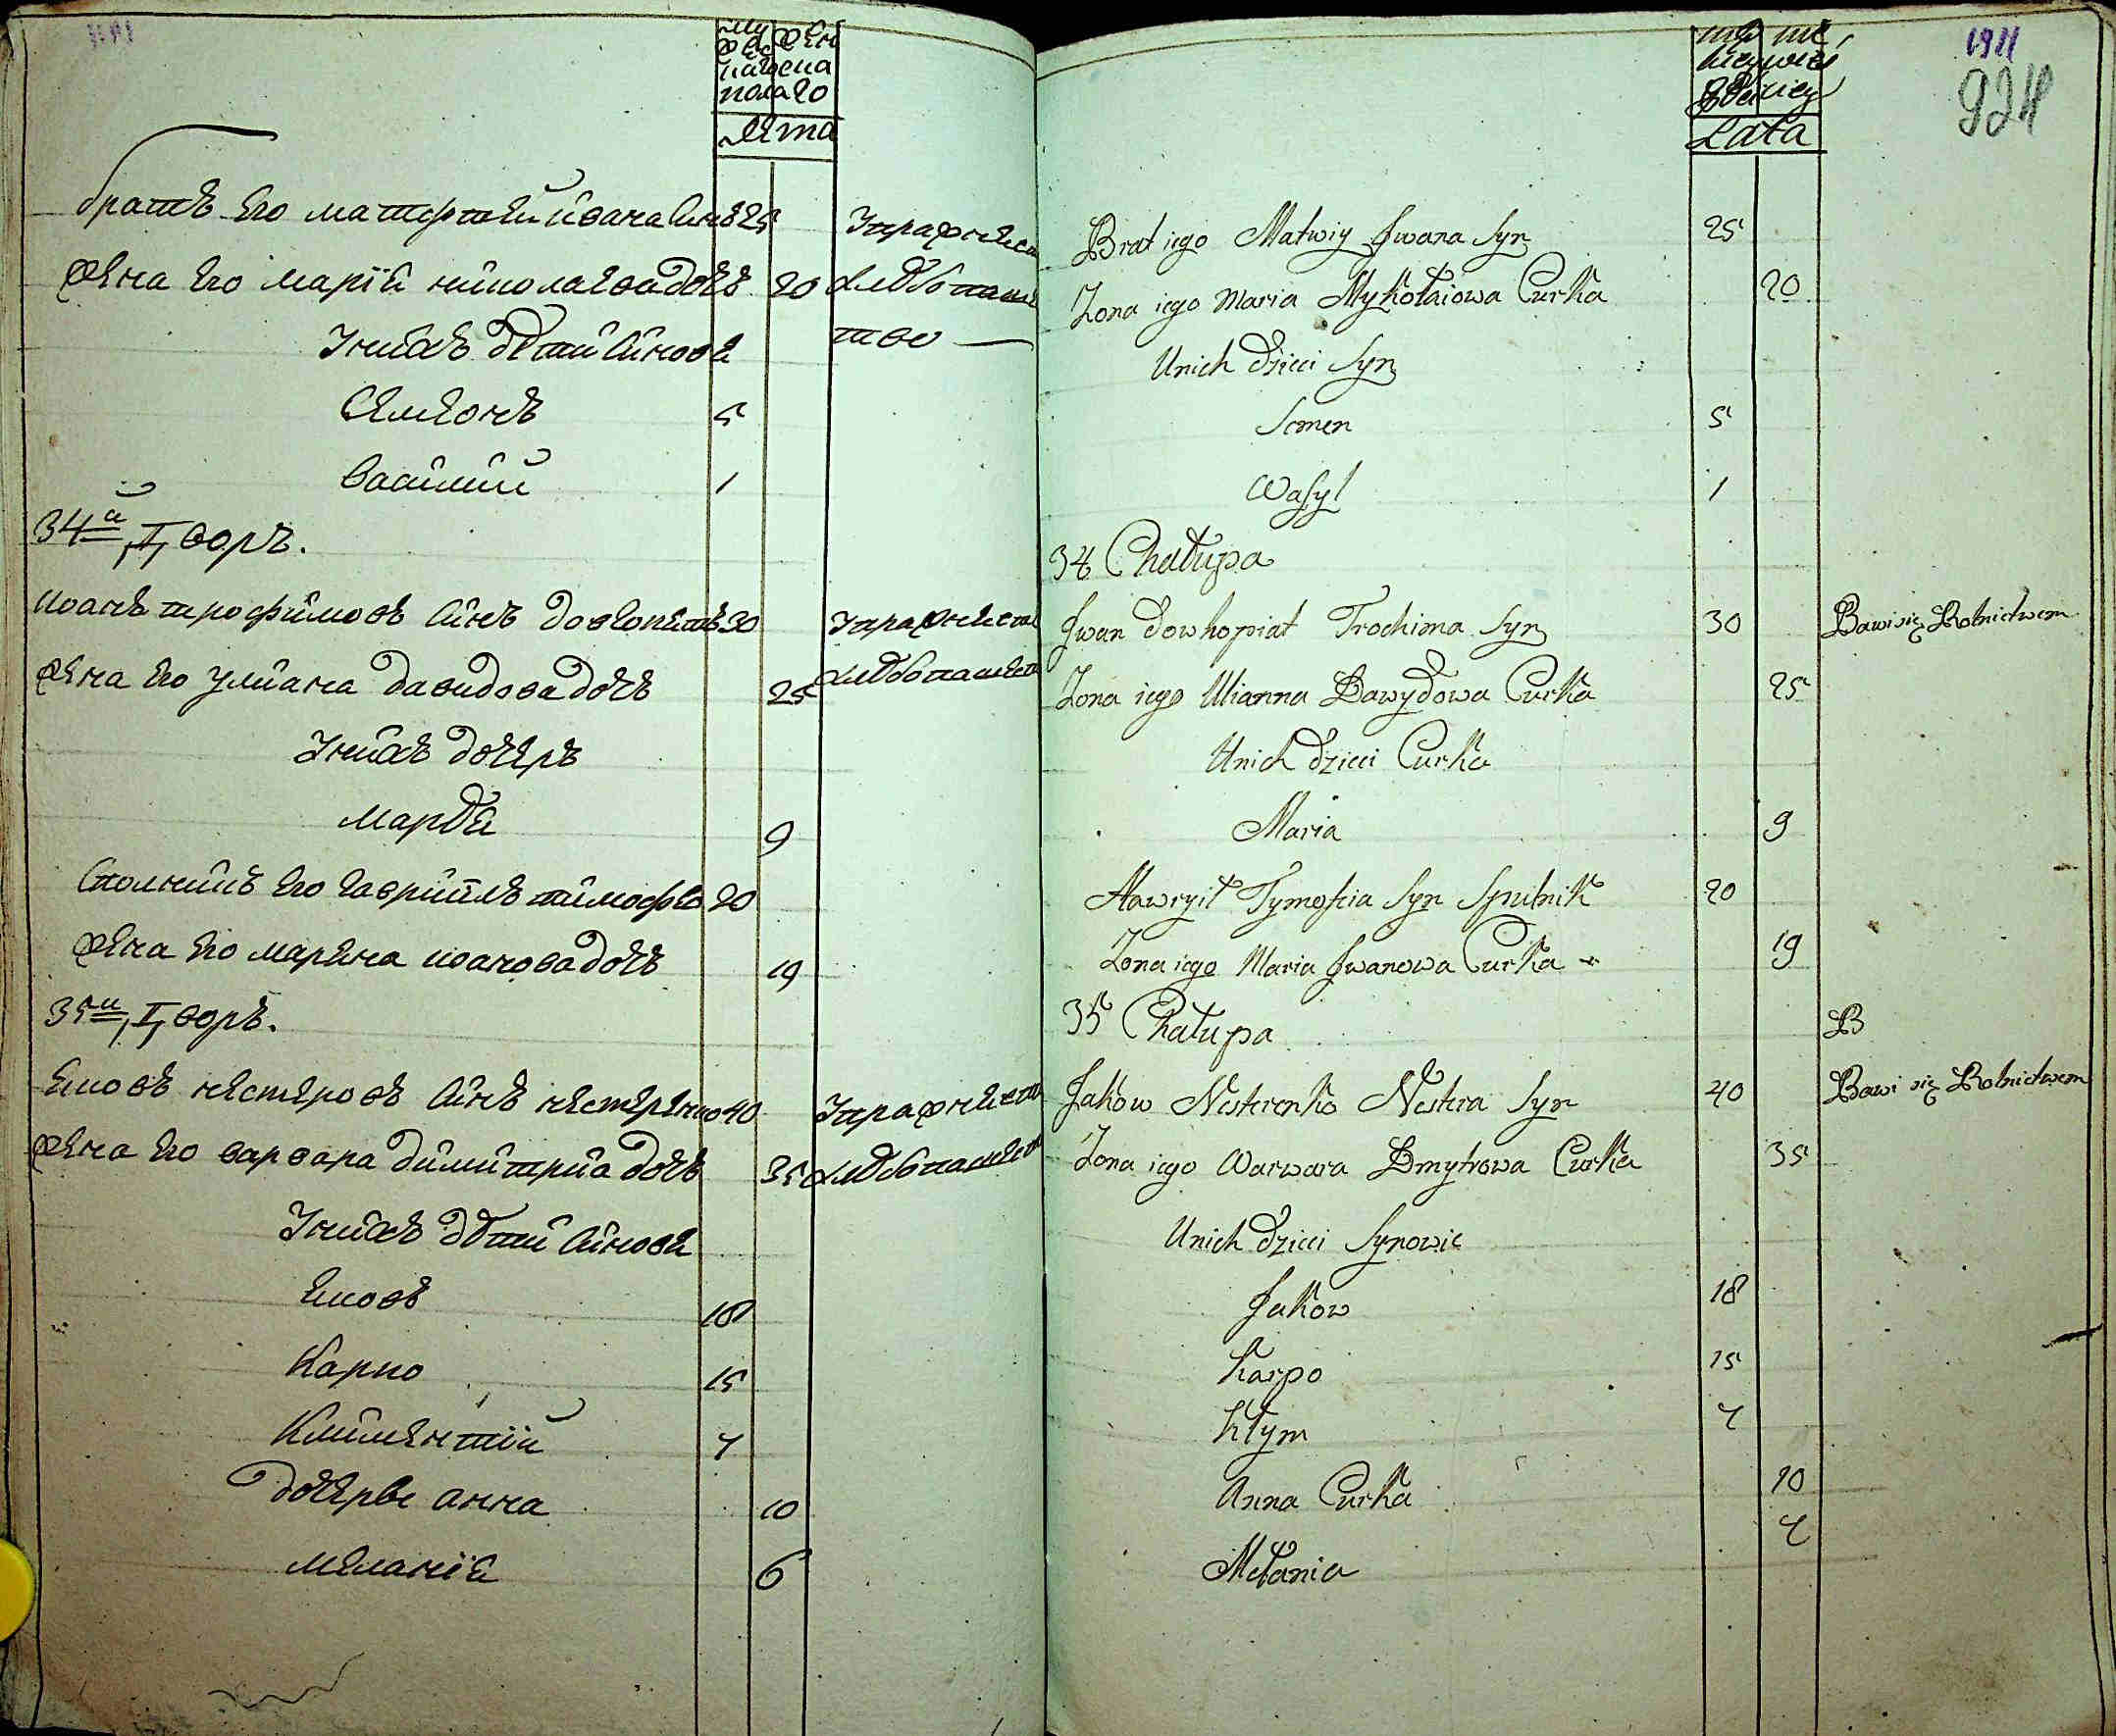 Лѣта
братъ его матфтей ивана синъ 25
жена его марія николаева дочь 20
Унихъ дети синовя
Семенъ 5
Василий 1
34й Дворъ.
иванъ трофимовъ синъ довгопятъ 30
Упражняется
жена его улиана давидова дочь 25
хлѣбопашест
Унихъ дочерь
маря 9
его гавриилъ тимофе 20
жена его марина иванова дочь 19
35й Дворъ.
яковъ нестеровъ синъ нестеренко 40
Упражняется
жена его варвара димитрия дочь 35
хлѣбопашест
Унихъ дѣти синовя
яковъ 18
Карпо 15
Климентий 7
дочерве анна 10
меланія 6
1911
924
Lata
Brat iego Matwiy Jwana Syn 25
Zona iego Maria Mykołaiowa Curka 20
Unich dzieci Syn
Semen 5
Wasyl 1
34 Chałupa
Jwan Dowhopiat Trochima Syn 30 Bawi się Rolnictwem
Zona iego Ulianna Dawydowa Curka 25
Unich dzieci Curka
Maria 9
Hawryił Tymofieia Syn Spulnik 20
Zona iego Maria Jwanowa Curka 19
35 Chałupa B
Jakow Nesterenko Nestera Syn 40 Bawi się Rolnictwem
Zona iego Warwara Dmytrowa Curka 35
Unich dzieci Synowie
Jakow 18
Karpo 15
Kłym 7
Anna Curka 10
Mełania 7